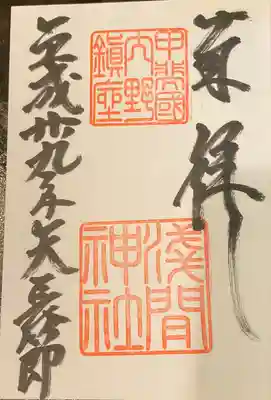 奉拝
甲斐國
内野
鎮座
淺間
神社
平成廿九年天長節